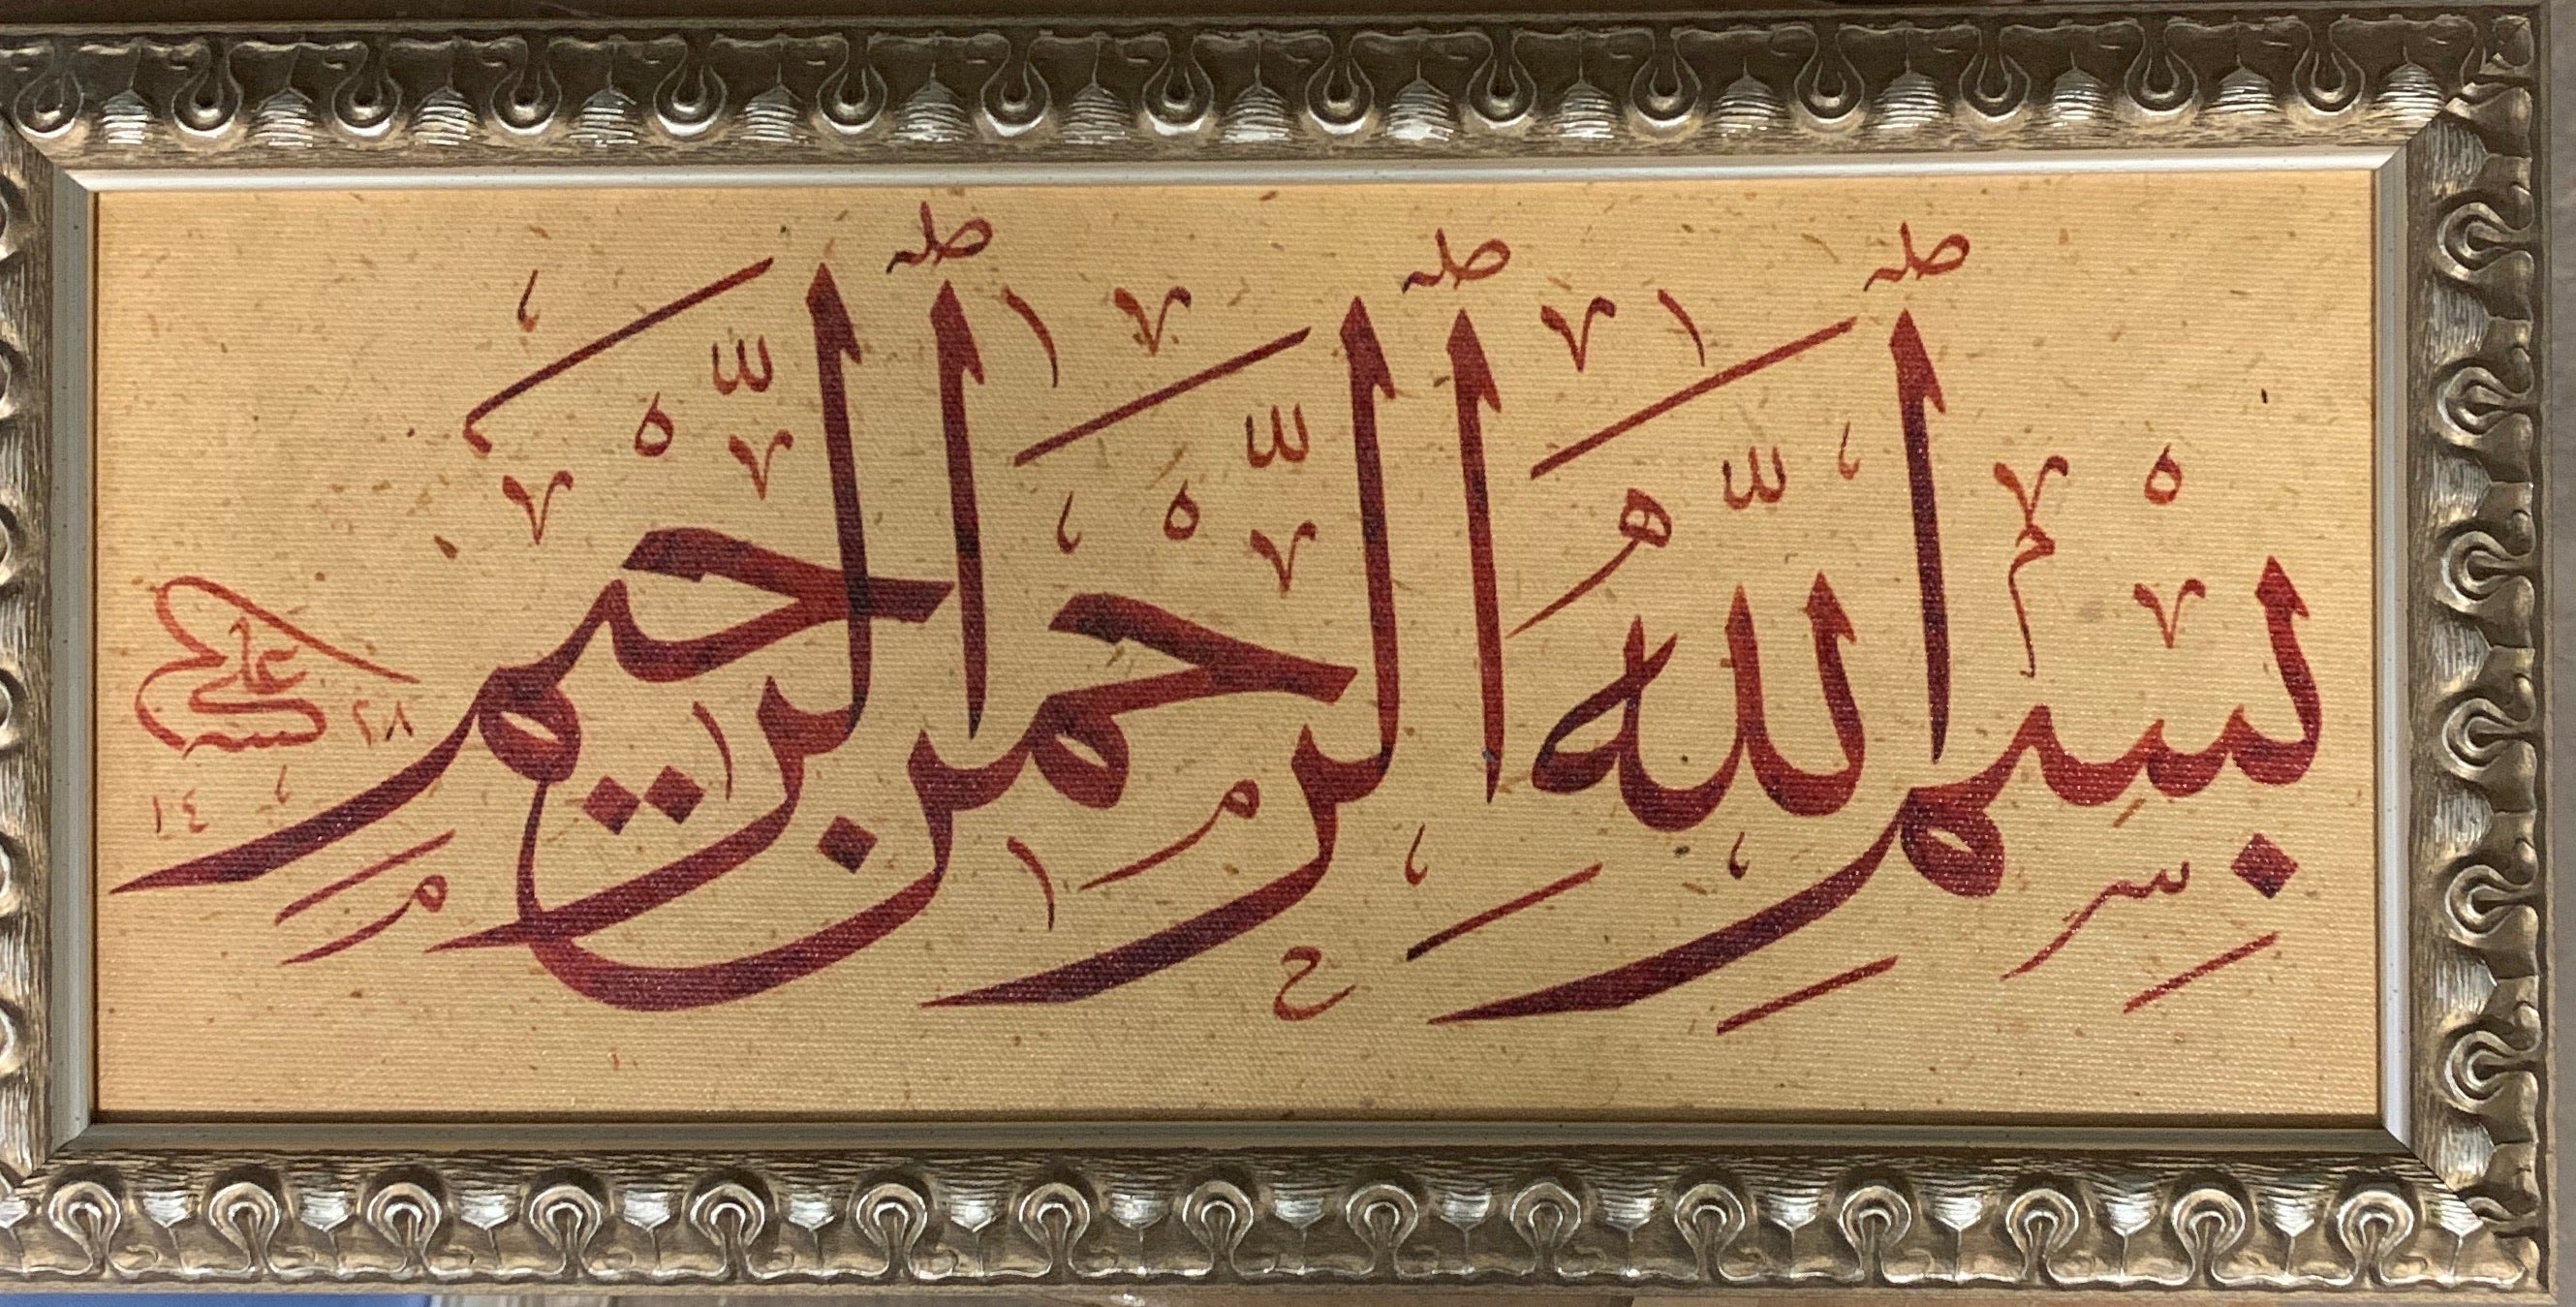 بِسْمِ اللَّهِ الرَّحْمَٰنِ الرَّحِيمِ
علي
١٤ ٢٨